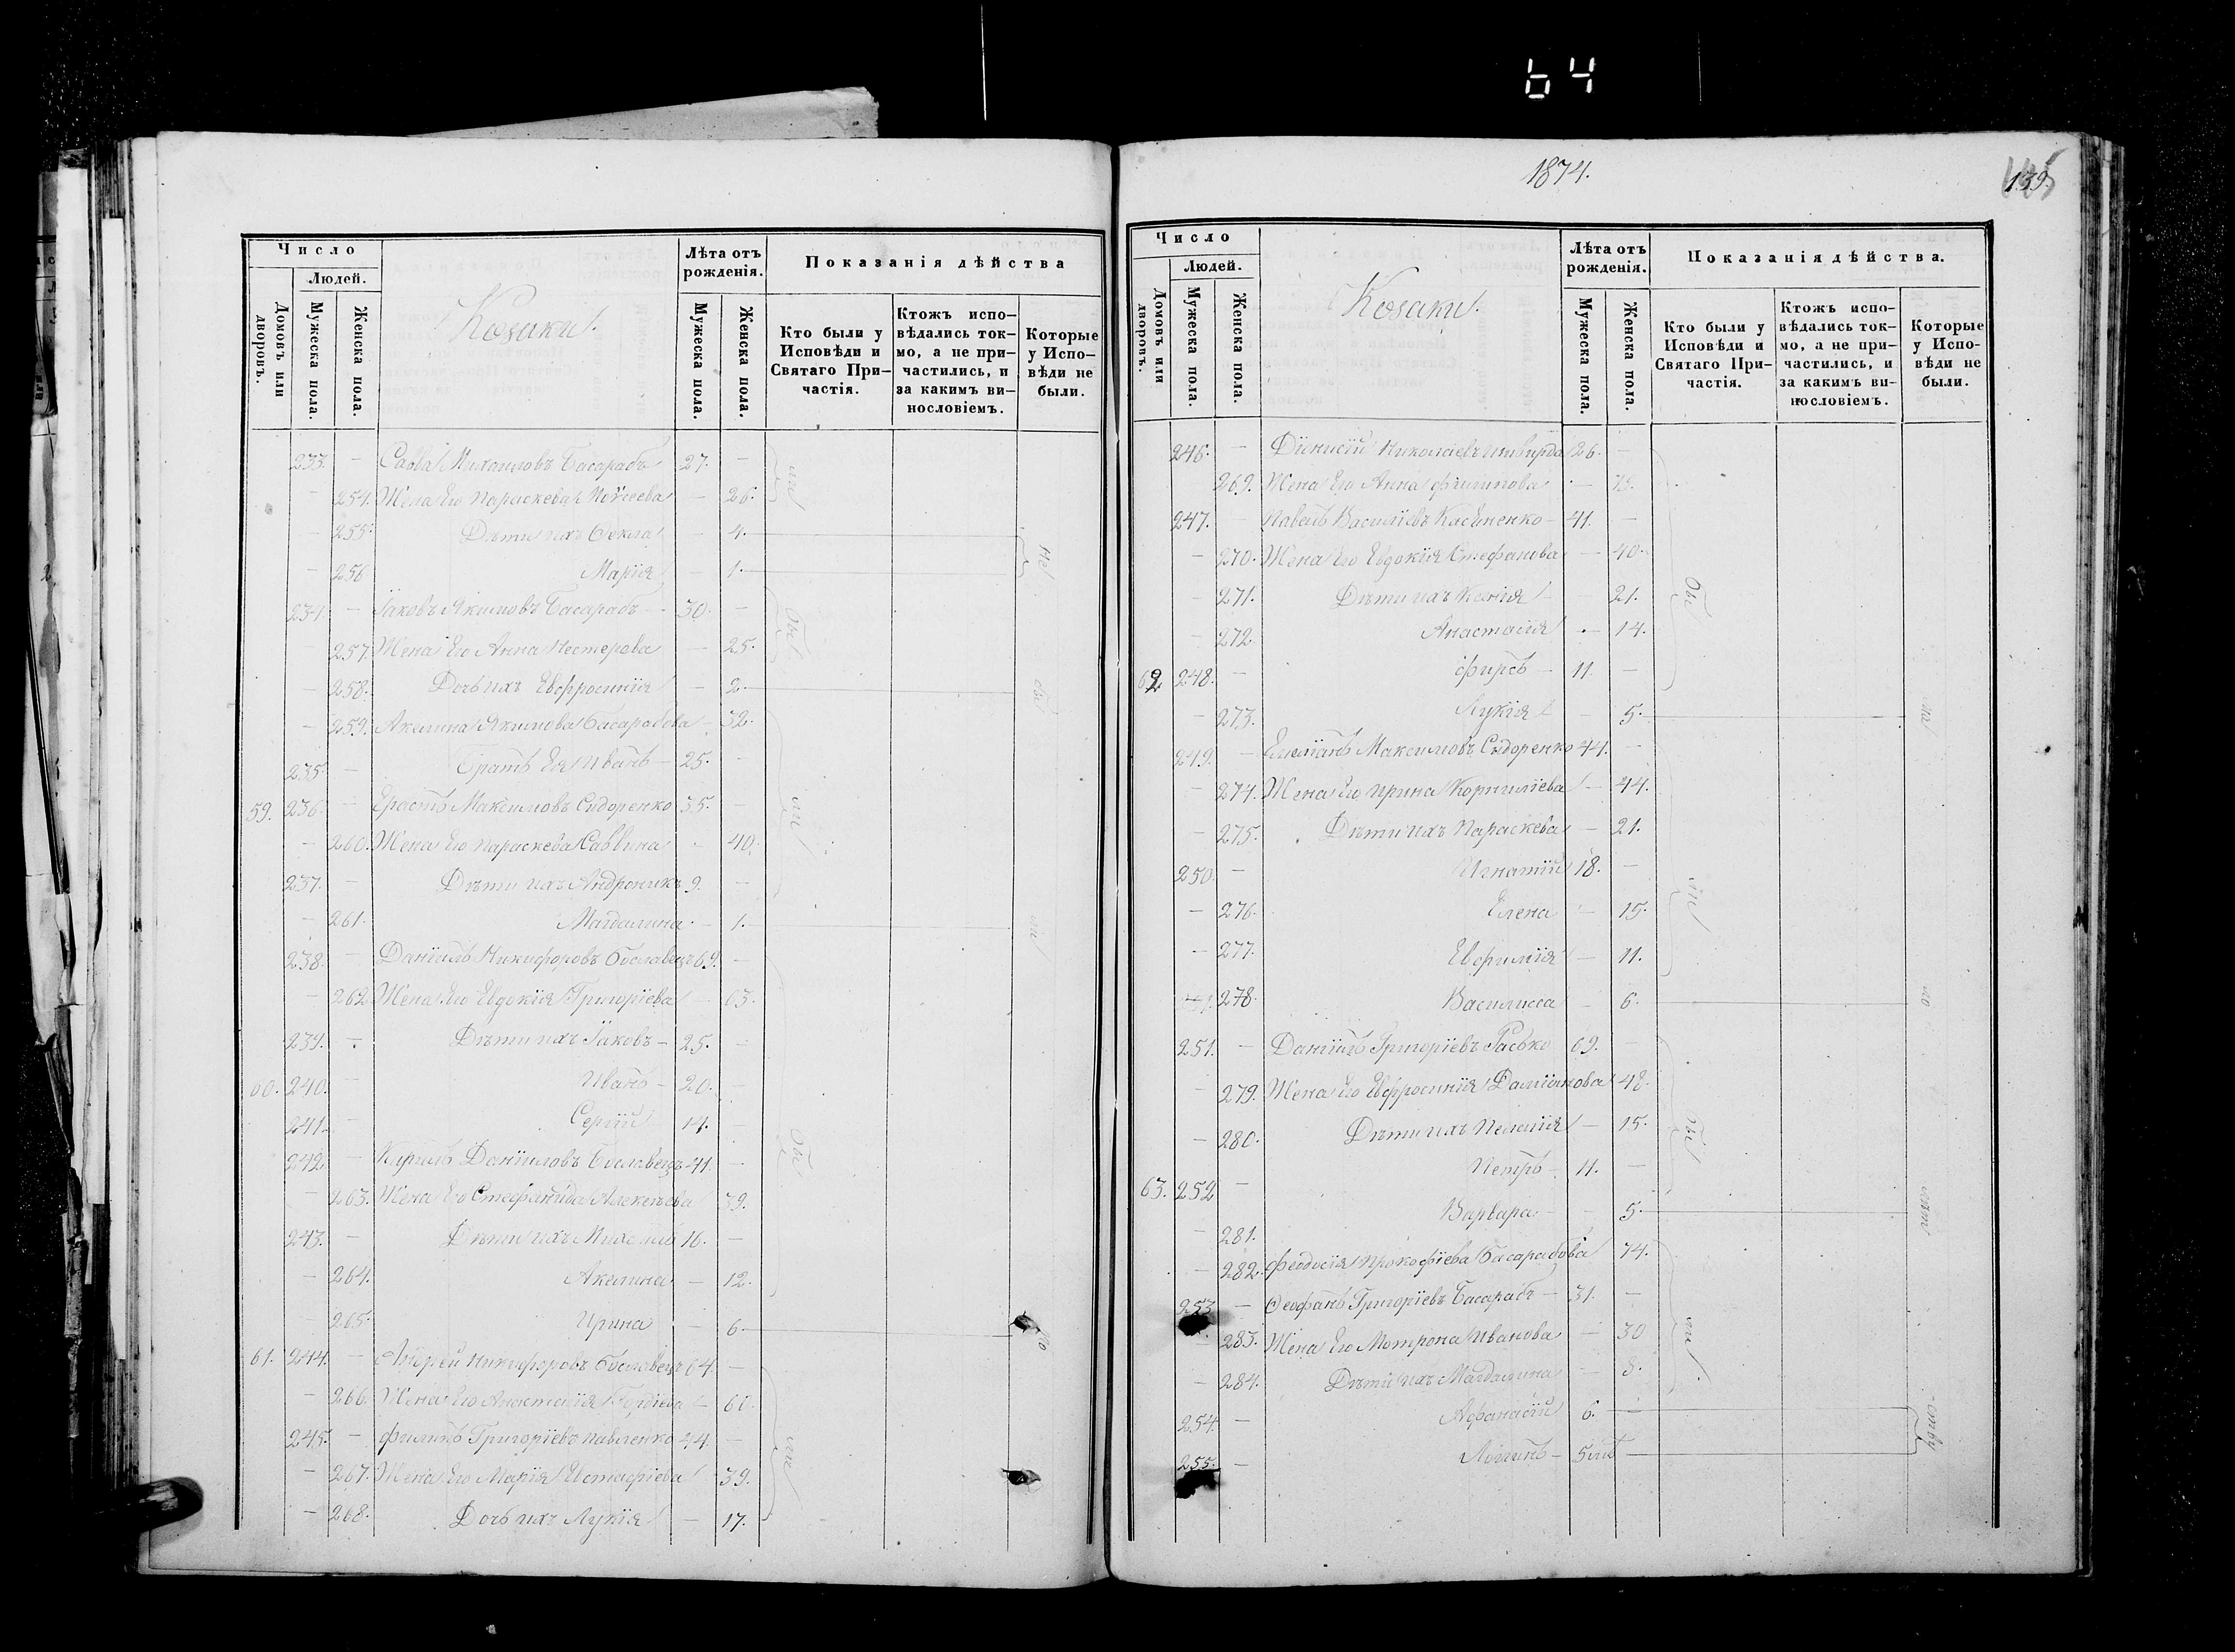 64
1874.
139.
Число
Людей.
Домовъ или дворовъ.
Мужеска пола.
Женска пола.
Козаки.
Лѣта отъ рожденія.
Мужеска пола.
Женска пола.
Показанія дѣйства
Кто были у Исповѣди и Святаго Причастія.
Ктожъ исповѣдались токмо, а не причастились, и за какимъ винословіемъ.
Которые у Исповѣди не были.
233. — Савва Михаиловъ Басарабъ 27. —
— 254. Жена Его Параскева Моѵсеева — 26.
— 255. Дѣти ихъ Ѳекла — 4.
— 256 Марія — 1.
234. — Іаковъ Якимовъ Басарабъ 30. —
— 257. Жена Его Анна Нестерова — 25.
— 258. Дочь ихъ Евфросинія — 2.
— 259. Акилина Якимова Басарабова — 32.
235. — Братъ Ея Иванъ — 25. —
59. 236. — Ерастъ Максимовъ Сидоренко 35. —
— 260. Жена Его Параскева Саввина — 40.
237. — Дѣти ихъ Андроникъ 9. —
— 261. Магдалина — 1.
238. — Даніилъ Никифоровъ Бославецъ 69. —
— 262. Жена Его Евдокія Григоріева — 63.
239. — Дѣти ихъ Іаковъ — 25. —
60. 240. — Иванъ — 20. —
241. — Сергій 14. —
242. — Кирилъ Даніиловъ Бославецъ 41. —
— 263. Жена Его Стефанида Алексѣева 39.
243. — Дѣти ихъ Михаилъ 16. —
— 264. Акилина — 12.
— 265. Ирина — 6.
61. 244. — Андрей Никифоровъ Бославецъ 64. —
— 266. Жена Его Анастасія Гордіева — 60.
245. — Филипъ Григоріевъ Павленко 44. —
— 267. Жена Его Марія Истафіева 39.
— 268. Дочь ихъ Лукія — 17.
Число
Людей.
Домовъ или дворовъ.
Мужеска пола.
Женска пола.
Козаки.
Лѣта отъ рожденія.
Мужеска пола.
Женска пола.
Показанія дѣйства.
Кто были у Исповѣди и Святаго Причастія.
Ктожъ исповѣдались токмо, а не причастились, и за какимъ винословіемъ.
Которые у Исповѣди не были.
246. — Діѵнисій Николаевъ 26. —
269. Жена Его Анна Филипова —
247. — Павелъ Василіевъ Касіяненко 41. —
— 270. Жена Его Евдокія Стефанова — 40.
— 271. Дѣти ихъ Ксенія — 21.
— 272 Анастасія — 14.
62 248. — Фирсъ — 11. —
— 273. Лукія — 5.
249. — Емиліанъ Максимовъ Сидоренко 44. —
— 274. Жена Его Ирина Корниліева — 44.
— 275. Дѣти ихъ Параскева — 21.
250. — Игнатій 18. —
— 276. Елена — 15.
— 277. Евфимія — 11.
278. Василисса — 6.
251. — Даніилъ Григоріевъ Расько 69. —
— 279. Жена Его Евфросинія Даміанова 48.
— 280. Дѣти ихъ Пелагія — 15.
63. 252 — Петръ — 11. —
— 281. Варвара — 5.
— 282. Феодосія Прокофіева Басарабова 74.
253 — Ѳеофанъ Григоріевъ Басарабъ — 31. —
— 283. Жена Его Мотрона Иванова — 30
— 284. Дѣти ихъ Магдалина — 8.
254. — Афанасій 6. —
255. — Логинъ —